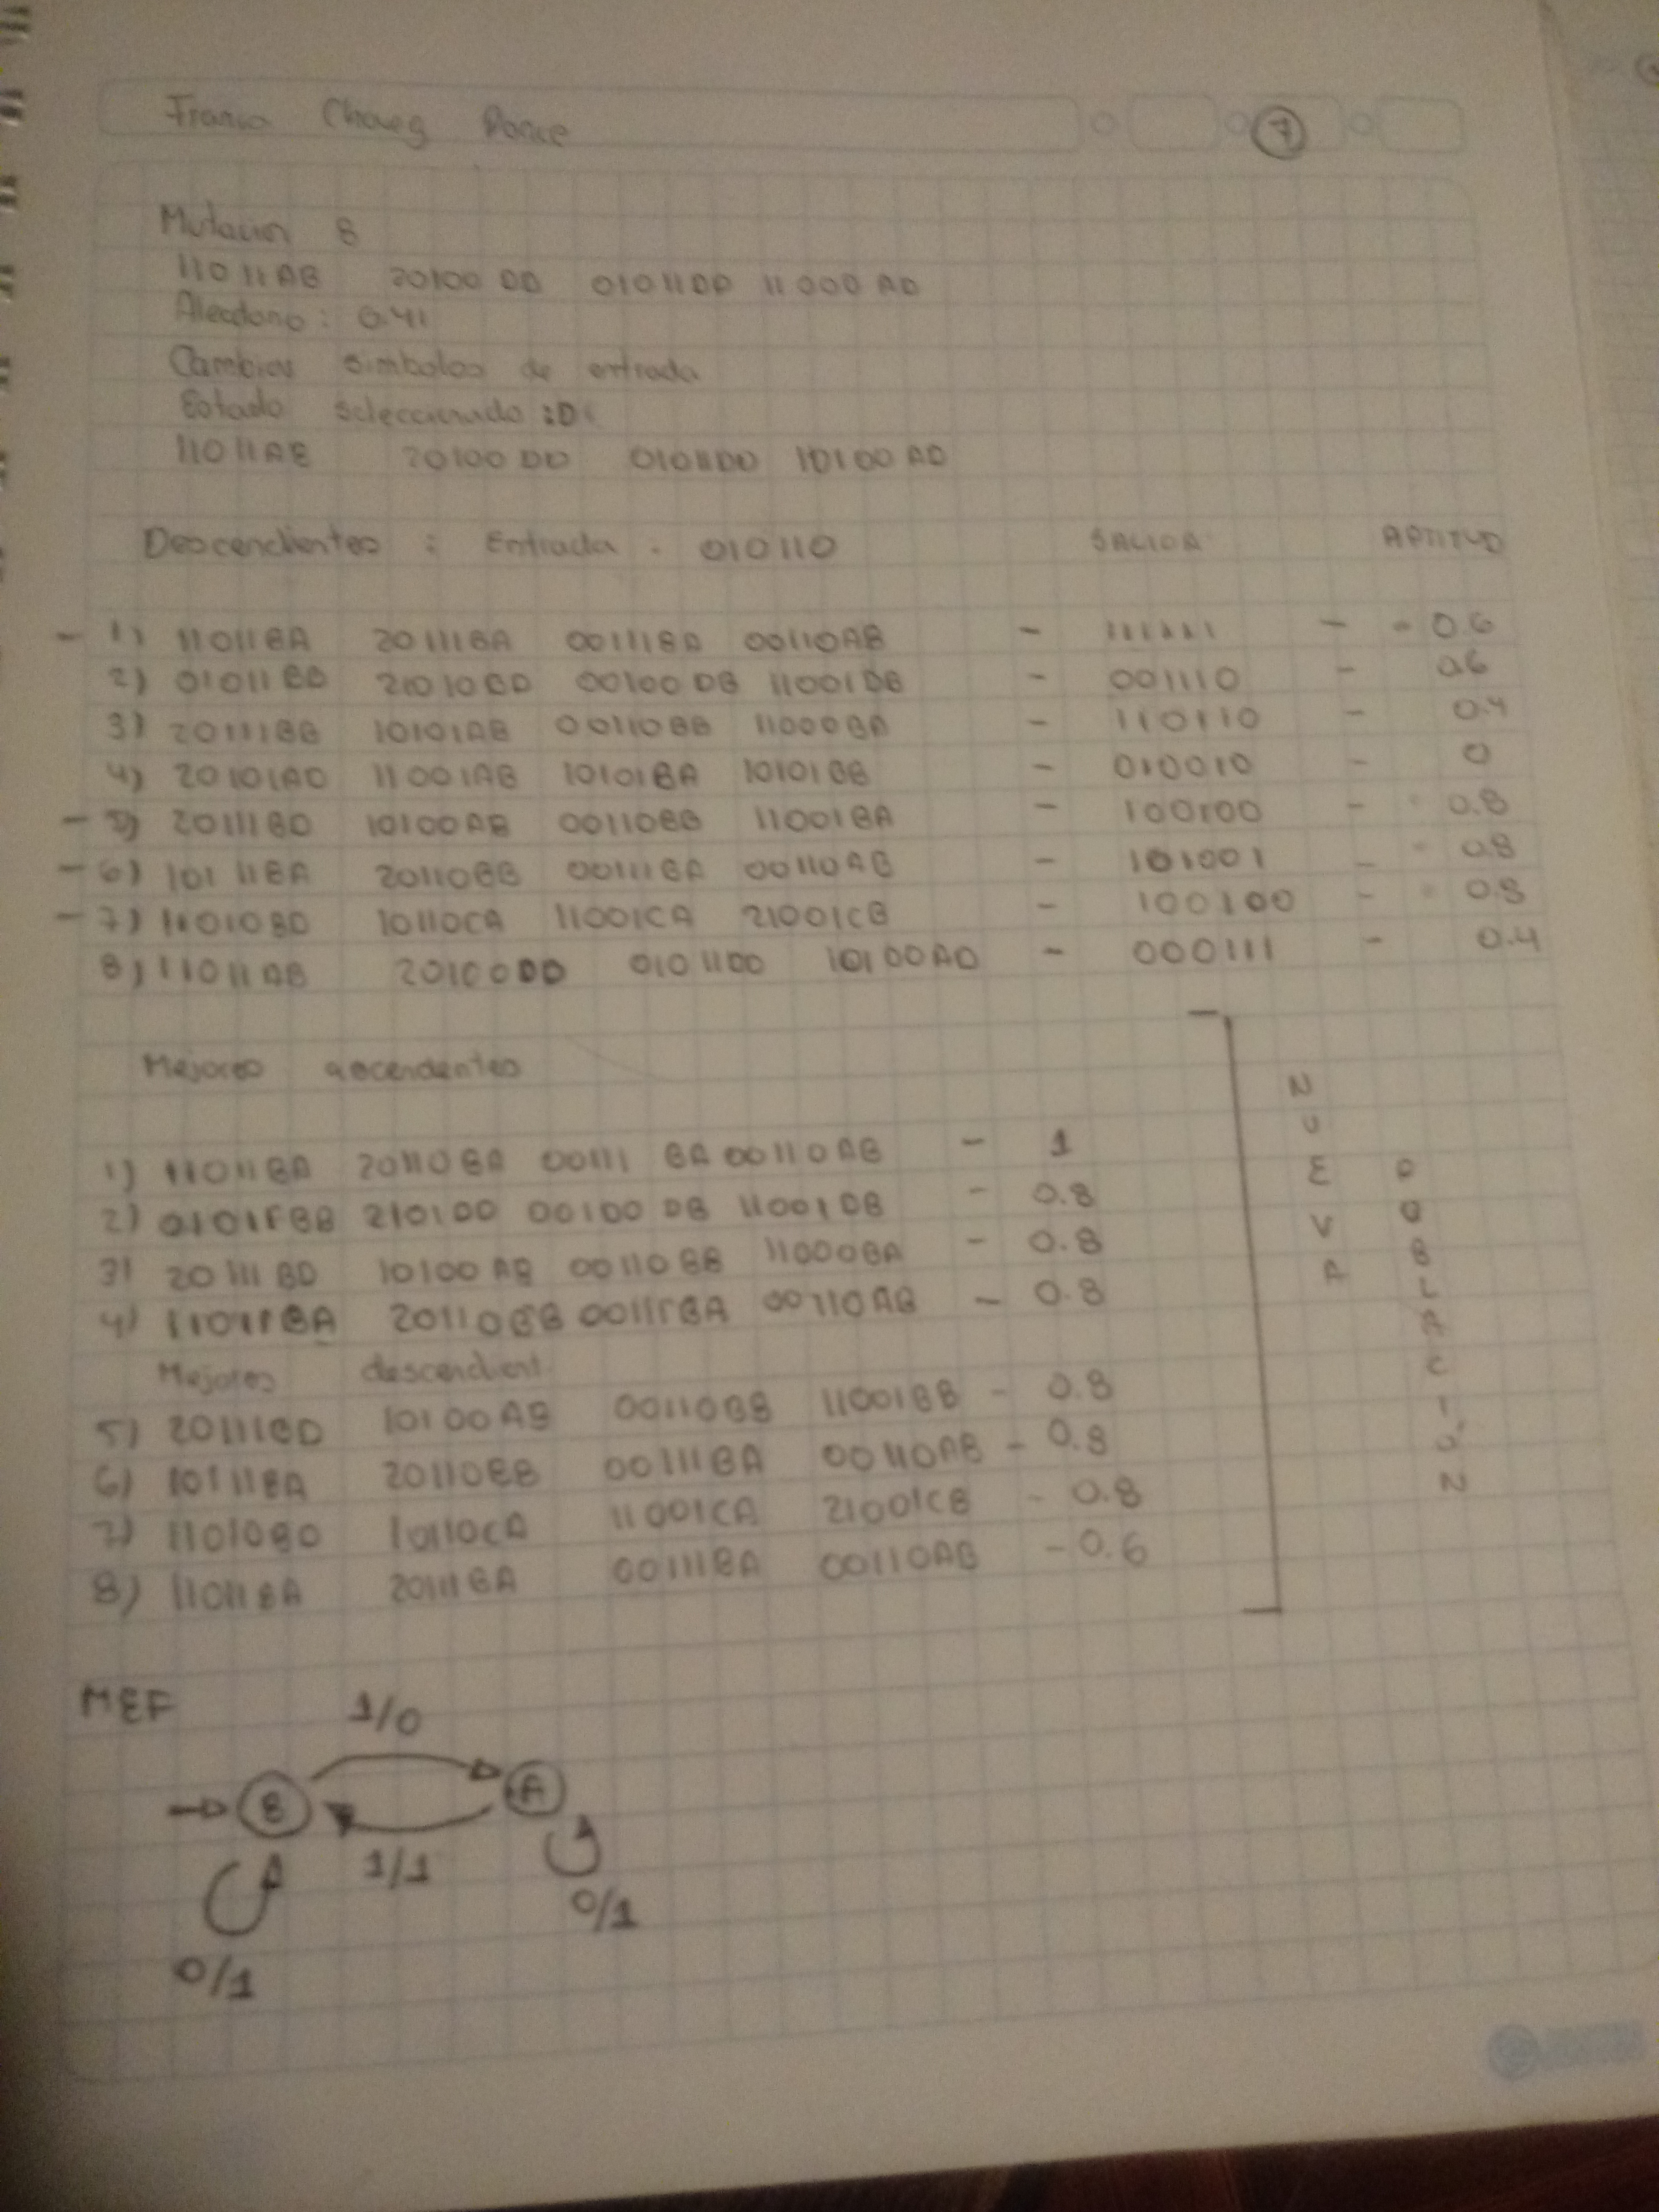 Franco Chavez Ponce 7
Mutacion 8
11011AB 20100DD 01011DD 11000AD
Aleatorio: 0.41
Cambiar simbolos de entrada
Estado seleccionado: D
11011AB 20100DD 01011DD 10100AD
Descendientes : Entrada : 010110 SALIDA APTITUD
- 1) 11011BA 20111BA 00111BA 00110AB - 111111 - 0.6
2) 01011BD 21010CD 00100DB 11001DB - 001110 - 0.6
3) 20111BB 10101AB 00110BB 11000BA - 110110 - 0.4
4) 20101AD 11001AB 10101BA 10101BB - 010010 - 0
- 5) 20111BD 10100AB 00110BB 11001BA - 100100 - 0.8
- 6) 10111BA 20110BB 00111BA 00110AB - 101001 - 0.8
- 7) 11010BD 10110CA 11001CA 21001CB - 100100 - 0.8
8) 11011AB 20100DD 01011DD 10100AD - 000111 - 0.4
Mejores ascendentes
1) 11011BA 20110BA 00111BA 00110AB - 1
2) 01011BB 21010D 00100DB 11001DB - 0.8
3) 20111BD 10100AB 00110BB 11000BA - 0.8
4) 11011BA 20110BB 00111BA 00110AB - 0.8
Mejores descendient
5) 20111BD 10100AB 00110BB 11001BB - 0.8
6) 10111BA 20110BB 00111BA 00110AB - 0.8
7) 11010BD 10110CA 11001CA 21001CB - 0.8
8) 11011BA 20111BA 00111BA 00110AB - 0.6
NUEVA
POBLACIÓN
MEF
1/0
B A
1/1
0/1
0/1